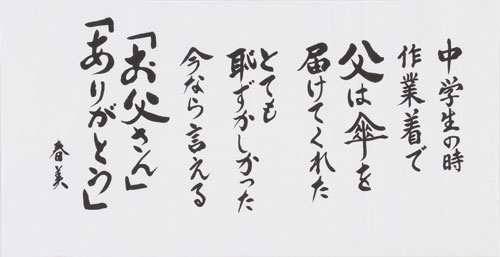 中学生の時
作業着で
父は傘を
届けてくれた
とても
恥ずかしかった
今なら言える
「お父さん」
「ありがとう」
春美